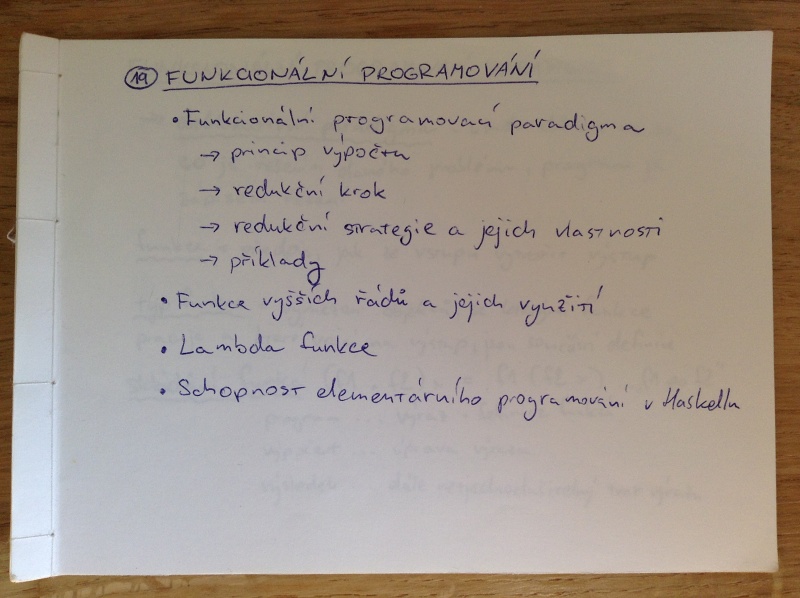 19 FUNKCIONÁLNÍ PROGRAMOVÁNÍ
• Funkcionální programovací paradigma
→ princip výpočtu
→ redukční krok
→ redukční strategie a jejich vlastnosti
→ příklady
• Funkce vyšších řádů a jejich využití
• Lambda funkce
• Schopnost elementárního programování v Haskellu